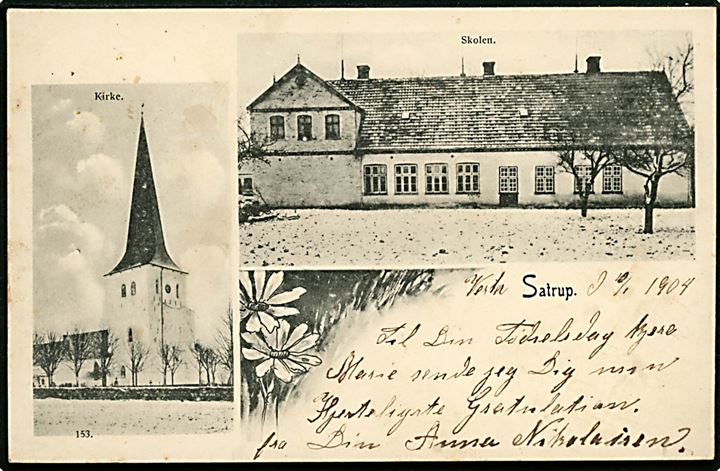 Skolen.
Kirke.
Vestr Satrup. D 10/1 1904
Til Din Födselsdag kjere
Marie sende jeg Dig min
Hjerteligste Gratulation.
fra Din Anna Nikolaisen.
153.